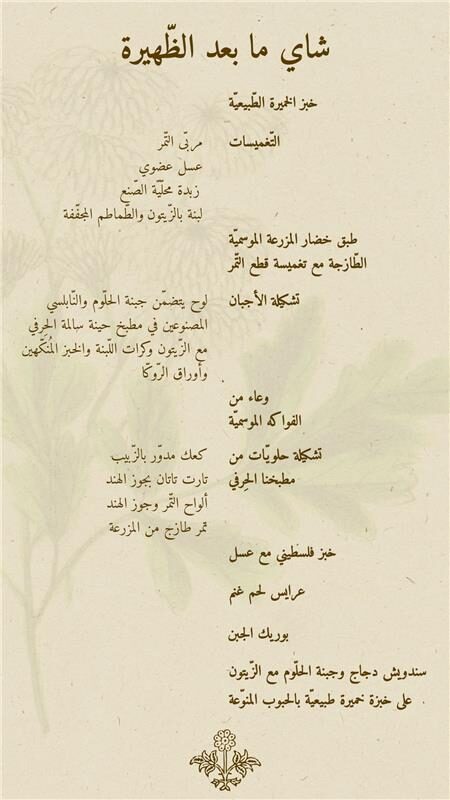 شاي ما بعد الظّهيرة
خبز الخميرة الطّبيعيّة
التّغميسات
مربّى التّمر
عسل عضوي
زبدة محلّيّة الصّنع
لبنة بالزّيتون والطّماطم المجفّفة
طبق خضار المزرعة الموسميّة
الطّازجة مع تغميسة قطع التّمر
تشكيلة الأجبان
لوح يتضمّن جبنة الحلّوم والنّابلسي
المصنوعين في مطبخ حينة سالمة الحرفي
مع الزّيتون وكرات اللّبنة والخبز المُنكّهين
وأوراق الرّوكّا
وعاء من
الفواكه الموسميّة
تشكيلة حلويّات من
مطبخنا الحِرفي
كعك مدوّر بالزّبيب
تارت تاتان بجوز الهند
ألواح التّمر وجوز الهند
تمر طازج من المزرعة
خبز فلسطيني مع عسل
عرايس لحم غنم
بوريك الجبن
سندويش دجاج وجبنة الحلّوم مع الزّيتون
على خبزة خميرة طبيعيّة بالحبوب المنوّعة